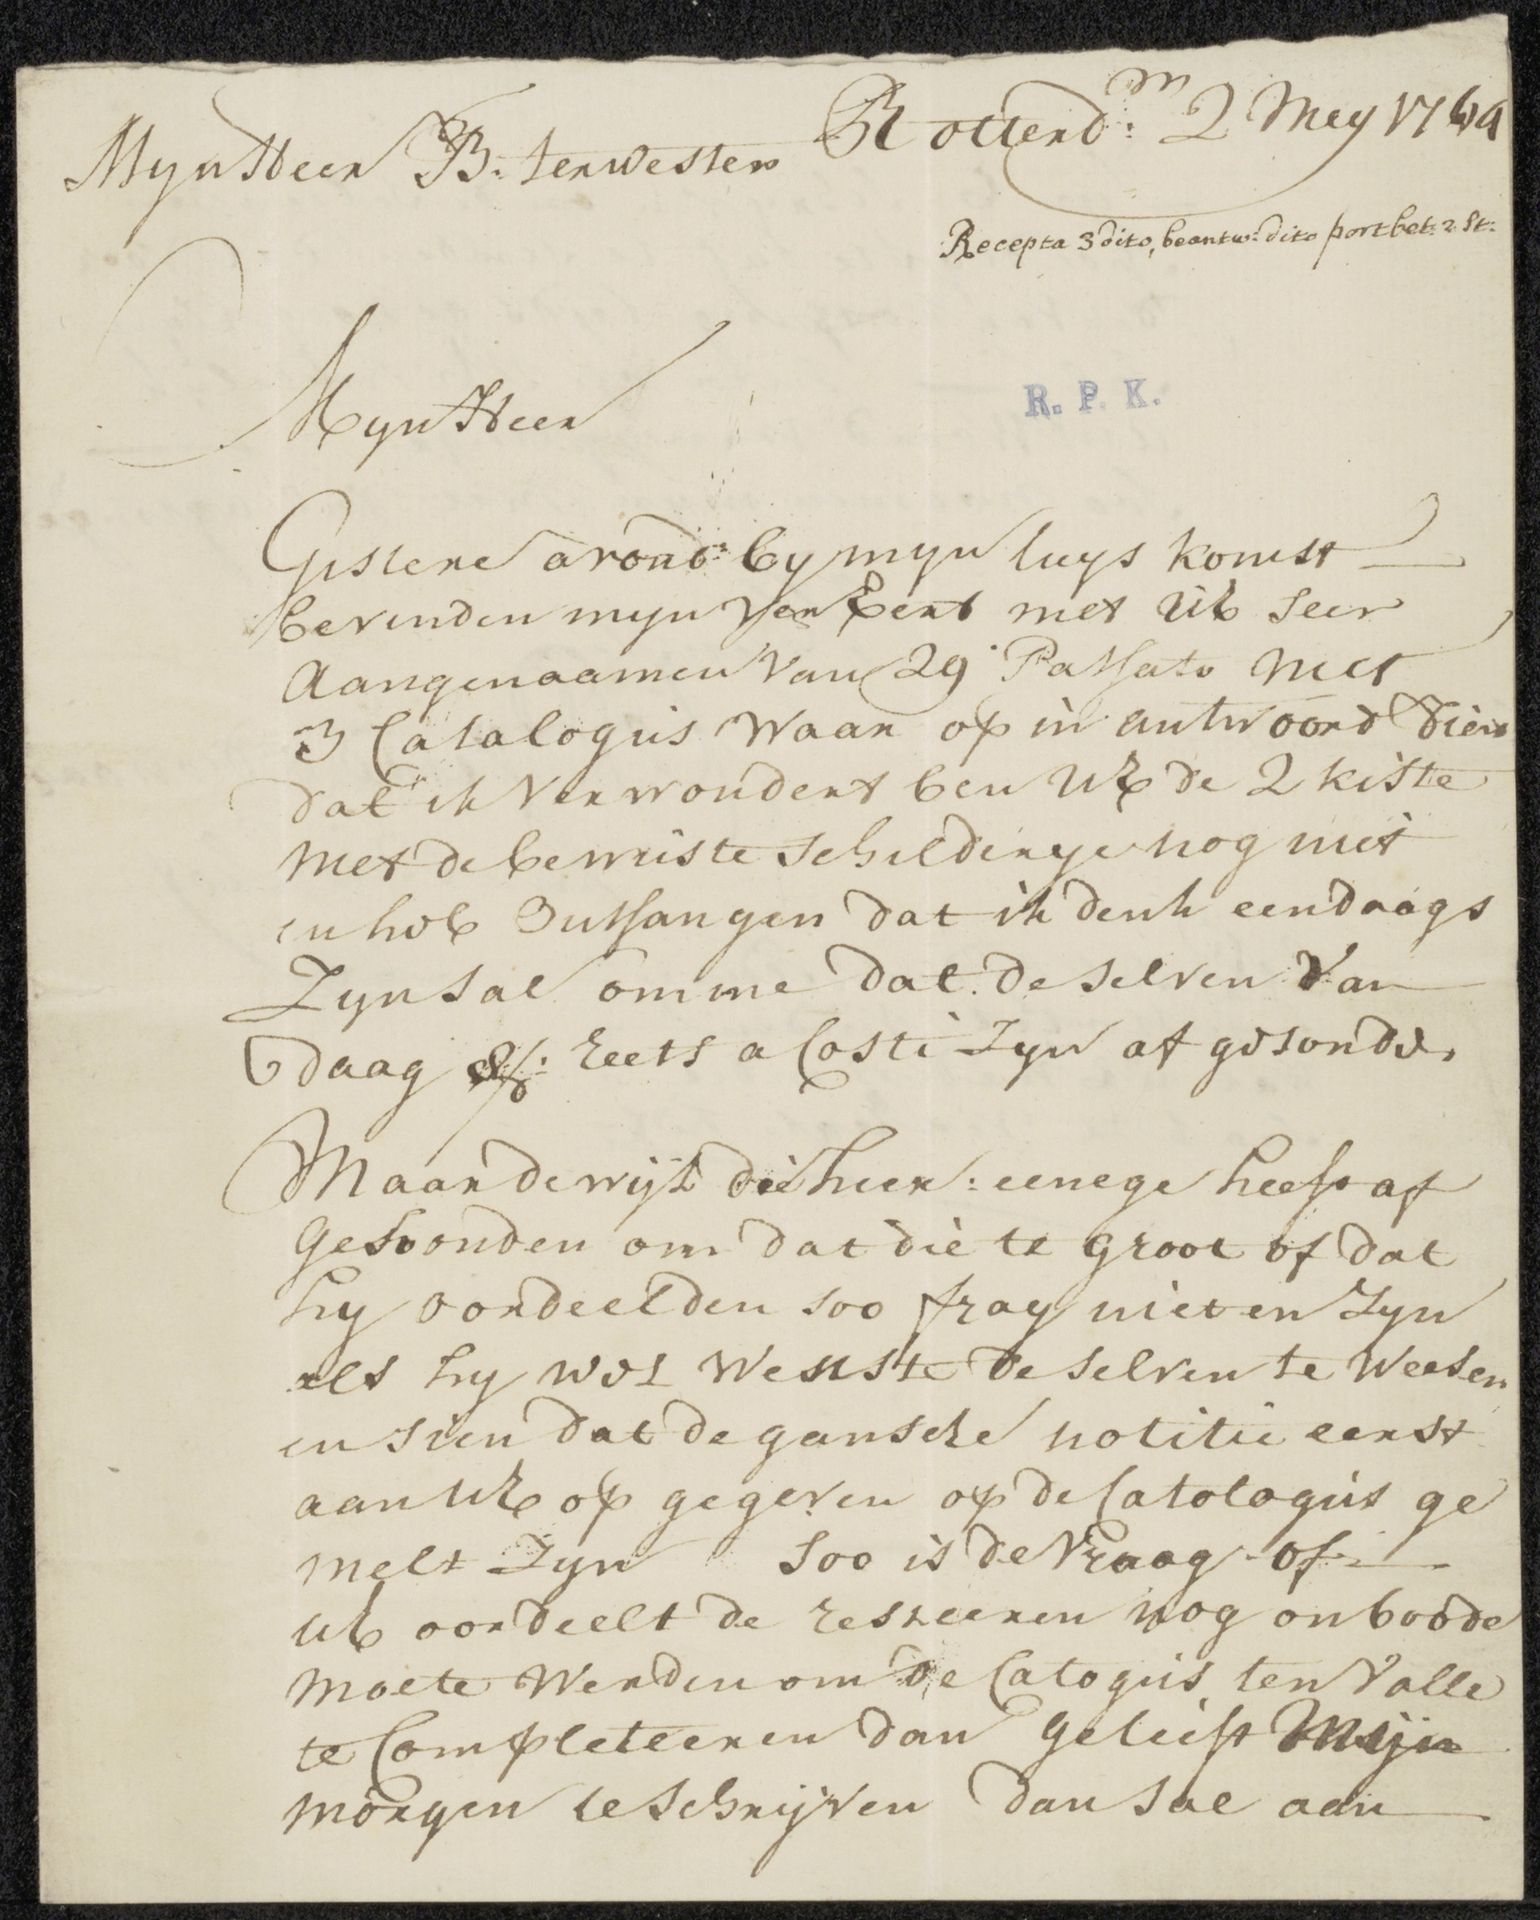 Rotterd:m 2 Mey 1769
Myn Heer B: terwesten
Recepta 3 dito, beantw: dito port bet: 2 st:
R. P. K.
Myn Heer
Gistere avond by myn huys komst
bevinden myn vereert met UE seer
Aangenaamen van 29 Passato met
3 Catalogus Waar op in antwoord dien
dat ik verwondert ben UE de 2 kiste
met de bewuste schilderye nog niet
en heb ontfangen dat ik denk eendaags
Zyn sal omme dat deselven van
daag reets a Costi Zyn af gesonde,
Maar dewijl die heer: eenege heeft af
Gesonden om dat die te groot of dat
hy oordeelden soo fray niet en Zyn
als hy wel Wenste deselven te Weesen
en sien dat de gansche notitie eerst
aan UE op gegeven op de Catologus ge
melt Zyn Soo is de Vraag of
UE oordeelt de resteeren nog onboode
moete Werden om de Catogus ten Volle
te Completeeren dan gelieft Mijn
morgen te schrijven dan sal aan